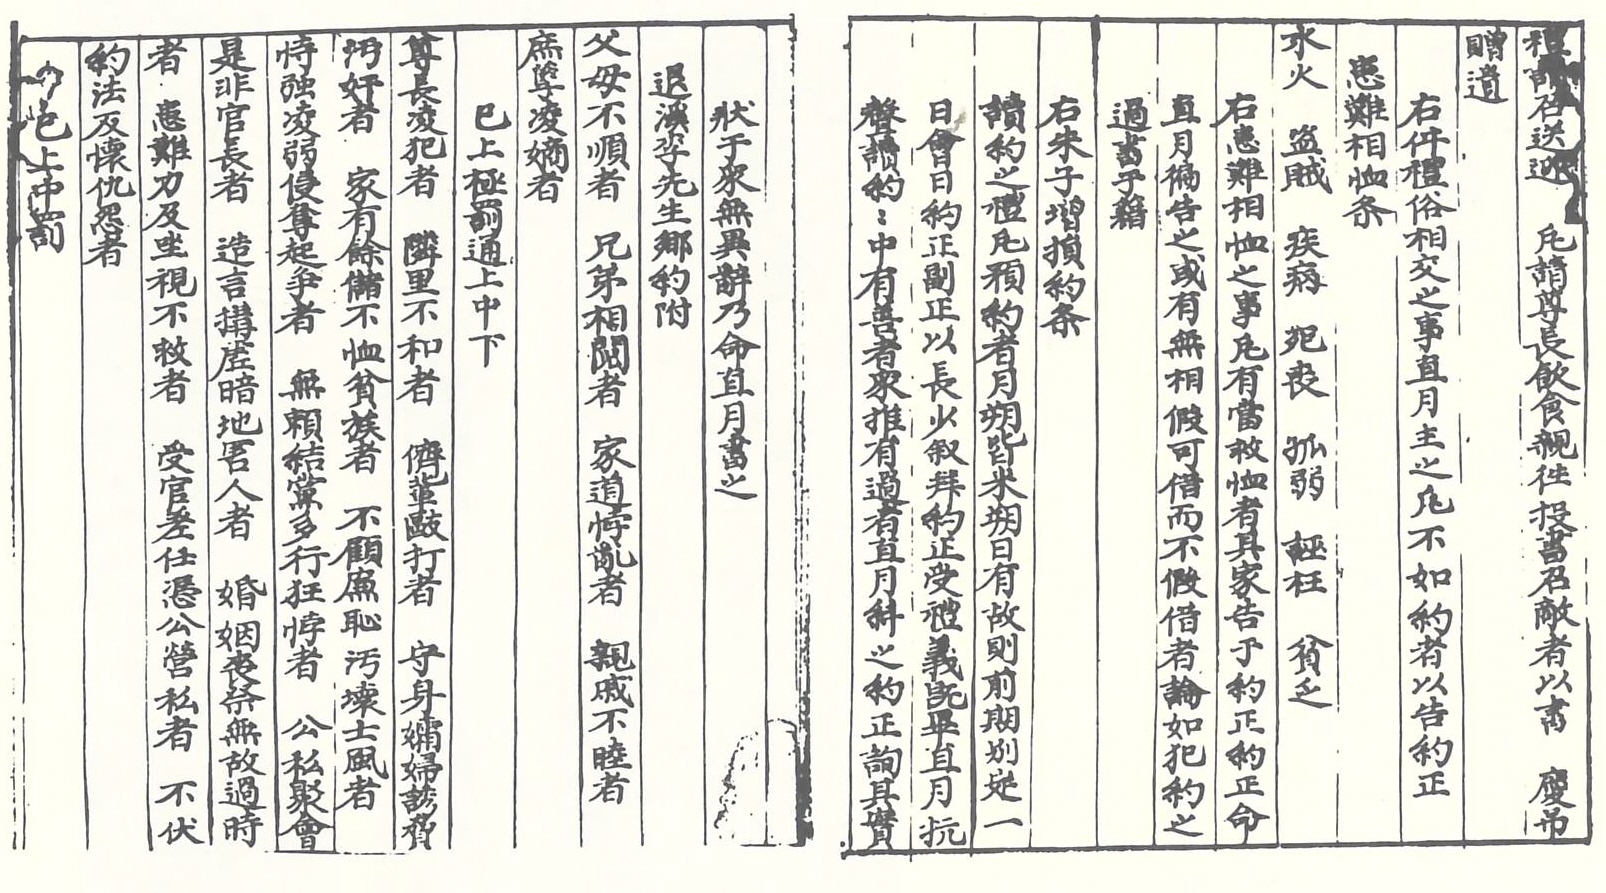 禮部召送迎　凡請尊長飲食親徃投書召敵者以書　慶吊
贈遺
右件禮俗相交之事直月主之凡不如約者以告約正
患難相恤条
水火　盜賊　疾病　死喪　孤弱　誣枉　貧乏
右患難相恤之事凡有當救恤者其家告于約正約正命
直月徧告之或有無相假可借而不假借者論如犯約之
過書于籍
右朱子增損約条
讀約之禮凡預約者月朔皆米朔日有故則前期別定一
日會日約正副正以長少叙拜約正受禮義既畢直月抗
聲讀約〻中有善者衆推有過者直月糾之約正詢其實
狀于衆無異辭乃命直月書之
退溪李先生鄉約附
父母不順者　兄弟相鬩者　家道悖亂者　親戚不睦者
庶孼凌嫡者
已上極罰通上中下
尊長凌犯者　隣里不和者　儕軰敺打者　守身孀婦誘脅
汚奸者　家有餘儲不恤貧族者　不顧廉恥汚壞士風者
恃強凌弱侵奪起爭者　無賴結黨多行狂悖者　公私聚會
是非官長者　造言搆虛暗地害人者　婚姻喪祭無故過時
者　患難力及坐視不救者　受官差任憑公營私者　不伏
約法反懷仇怨者
已上中罰